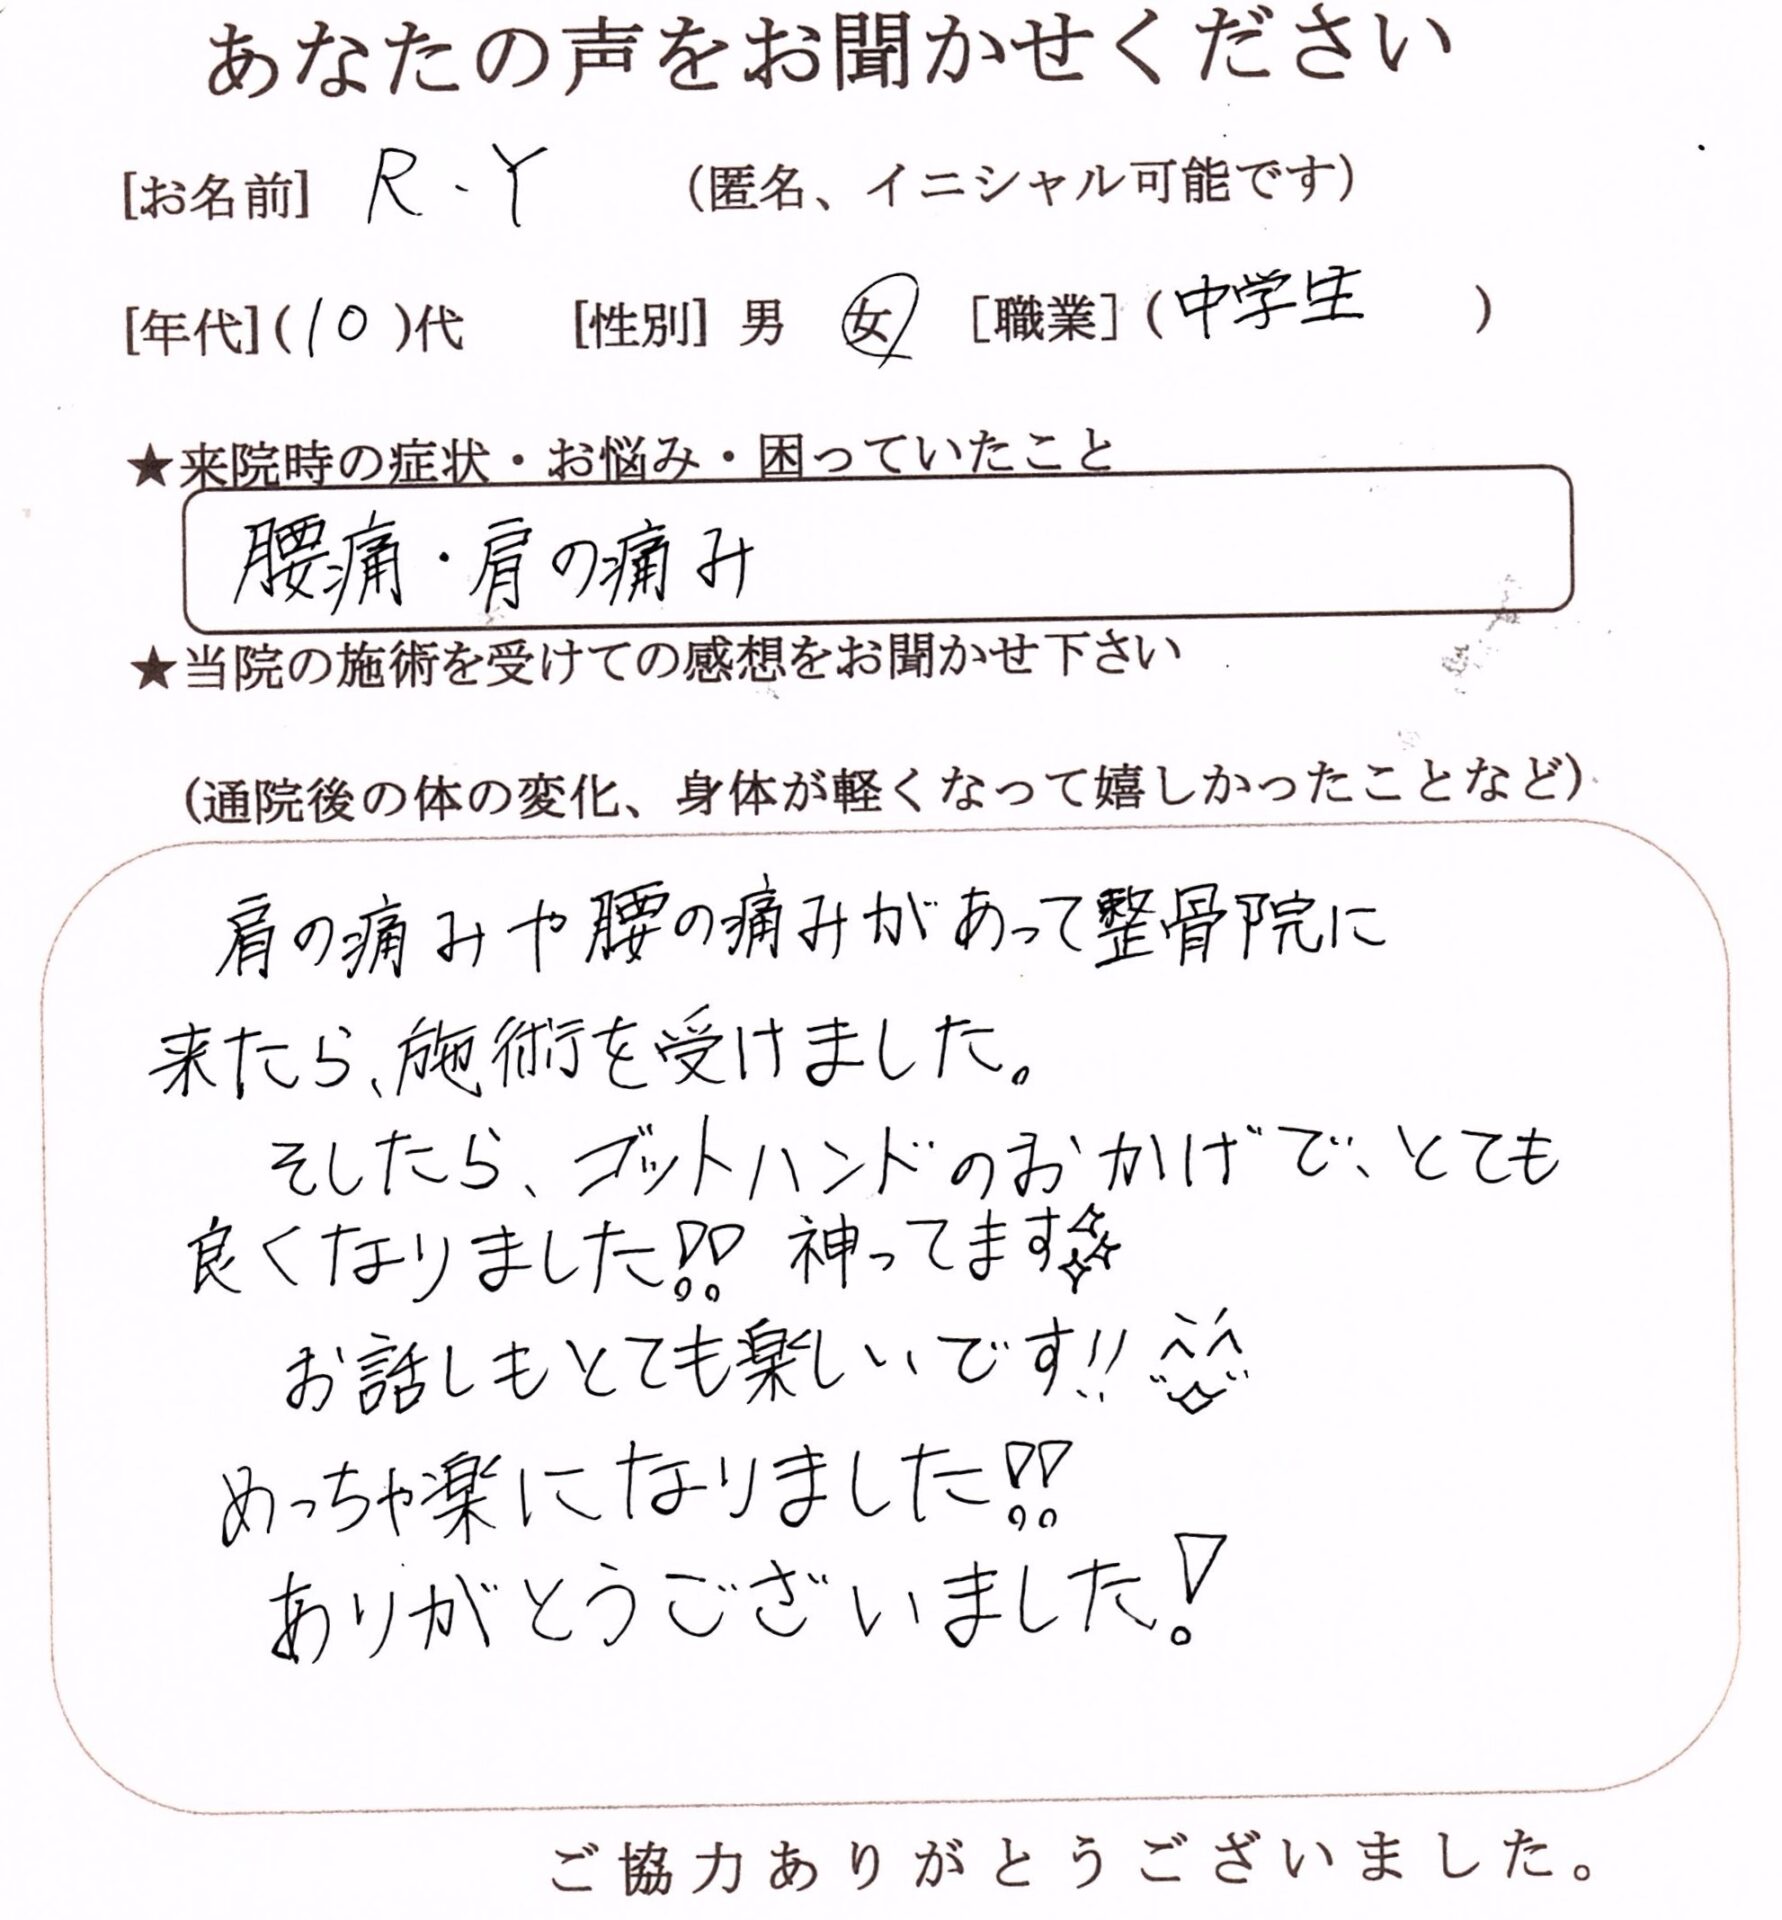 あなたの声をお聞かせください
[お名前] R.Y (匿名、イニシャル可能です)
[年代](10)代 [性別] 男 女 [職業](中学生 )
★来院時の症状・お悩み・困っていたこと
腰痛・肩の痛み
★当院の施術を受けての感想をお聞かせ下さい
(通院後の体の変化、身体が軽くなって嬉しかったことなど)
肩の痛みや腰の痛みがあって整骨院に
来たら、施術を受けました。
そしたら、ゴットハンドのおかげで、とても
良くなりました!! 神ってます
お話しもとても楽しいです!!
めっちゃ楽になりました!!
ありがとうございました!
ご協力ありがとうございました。